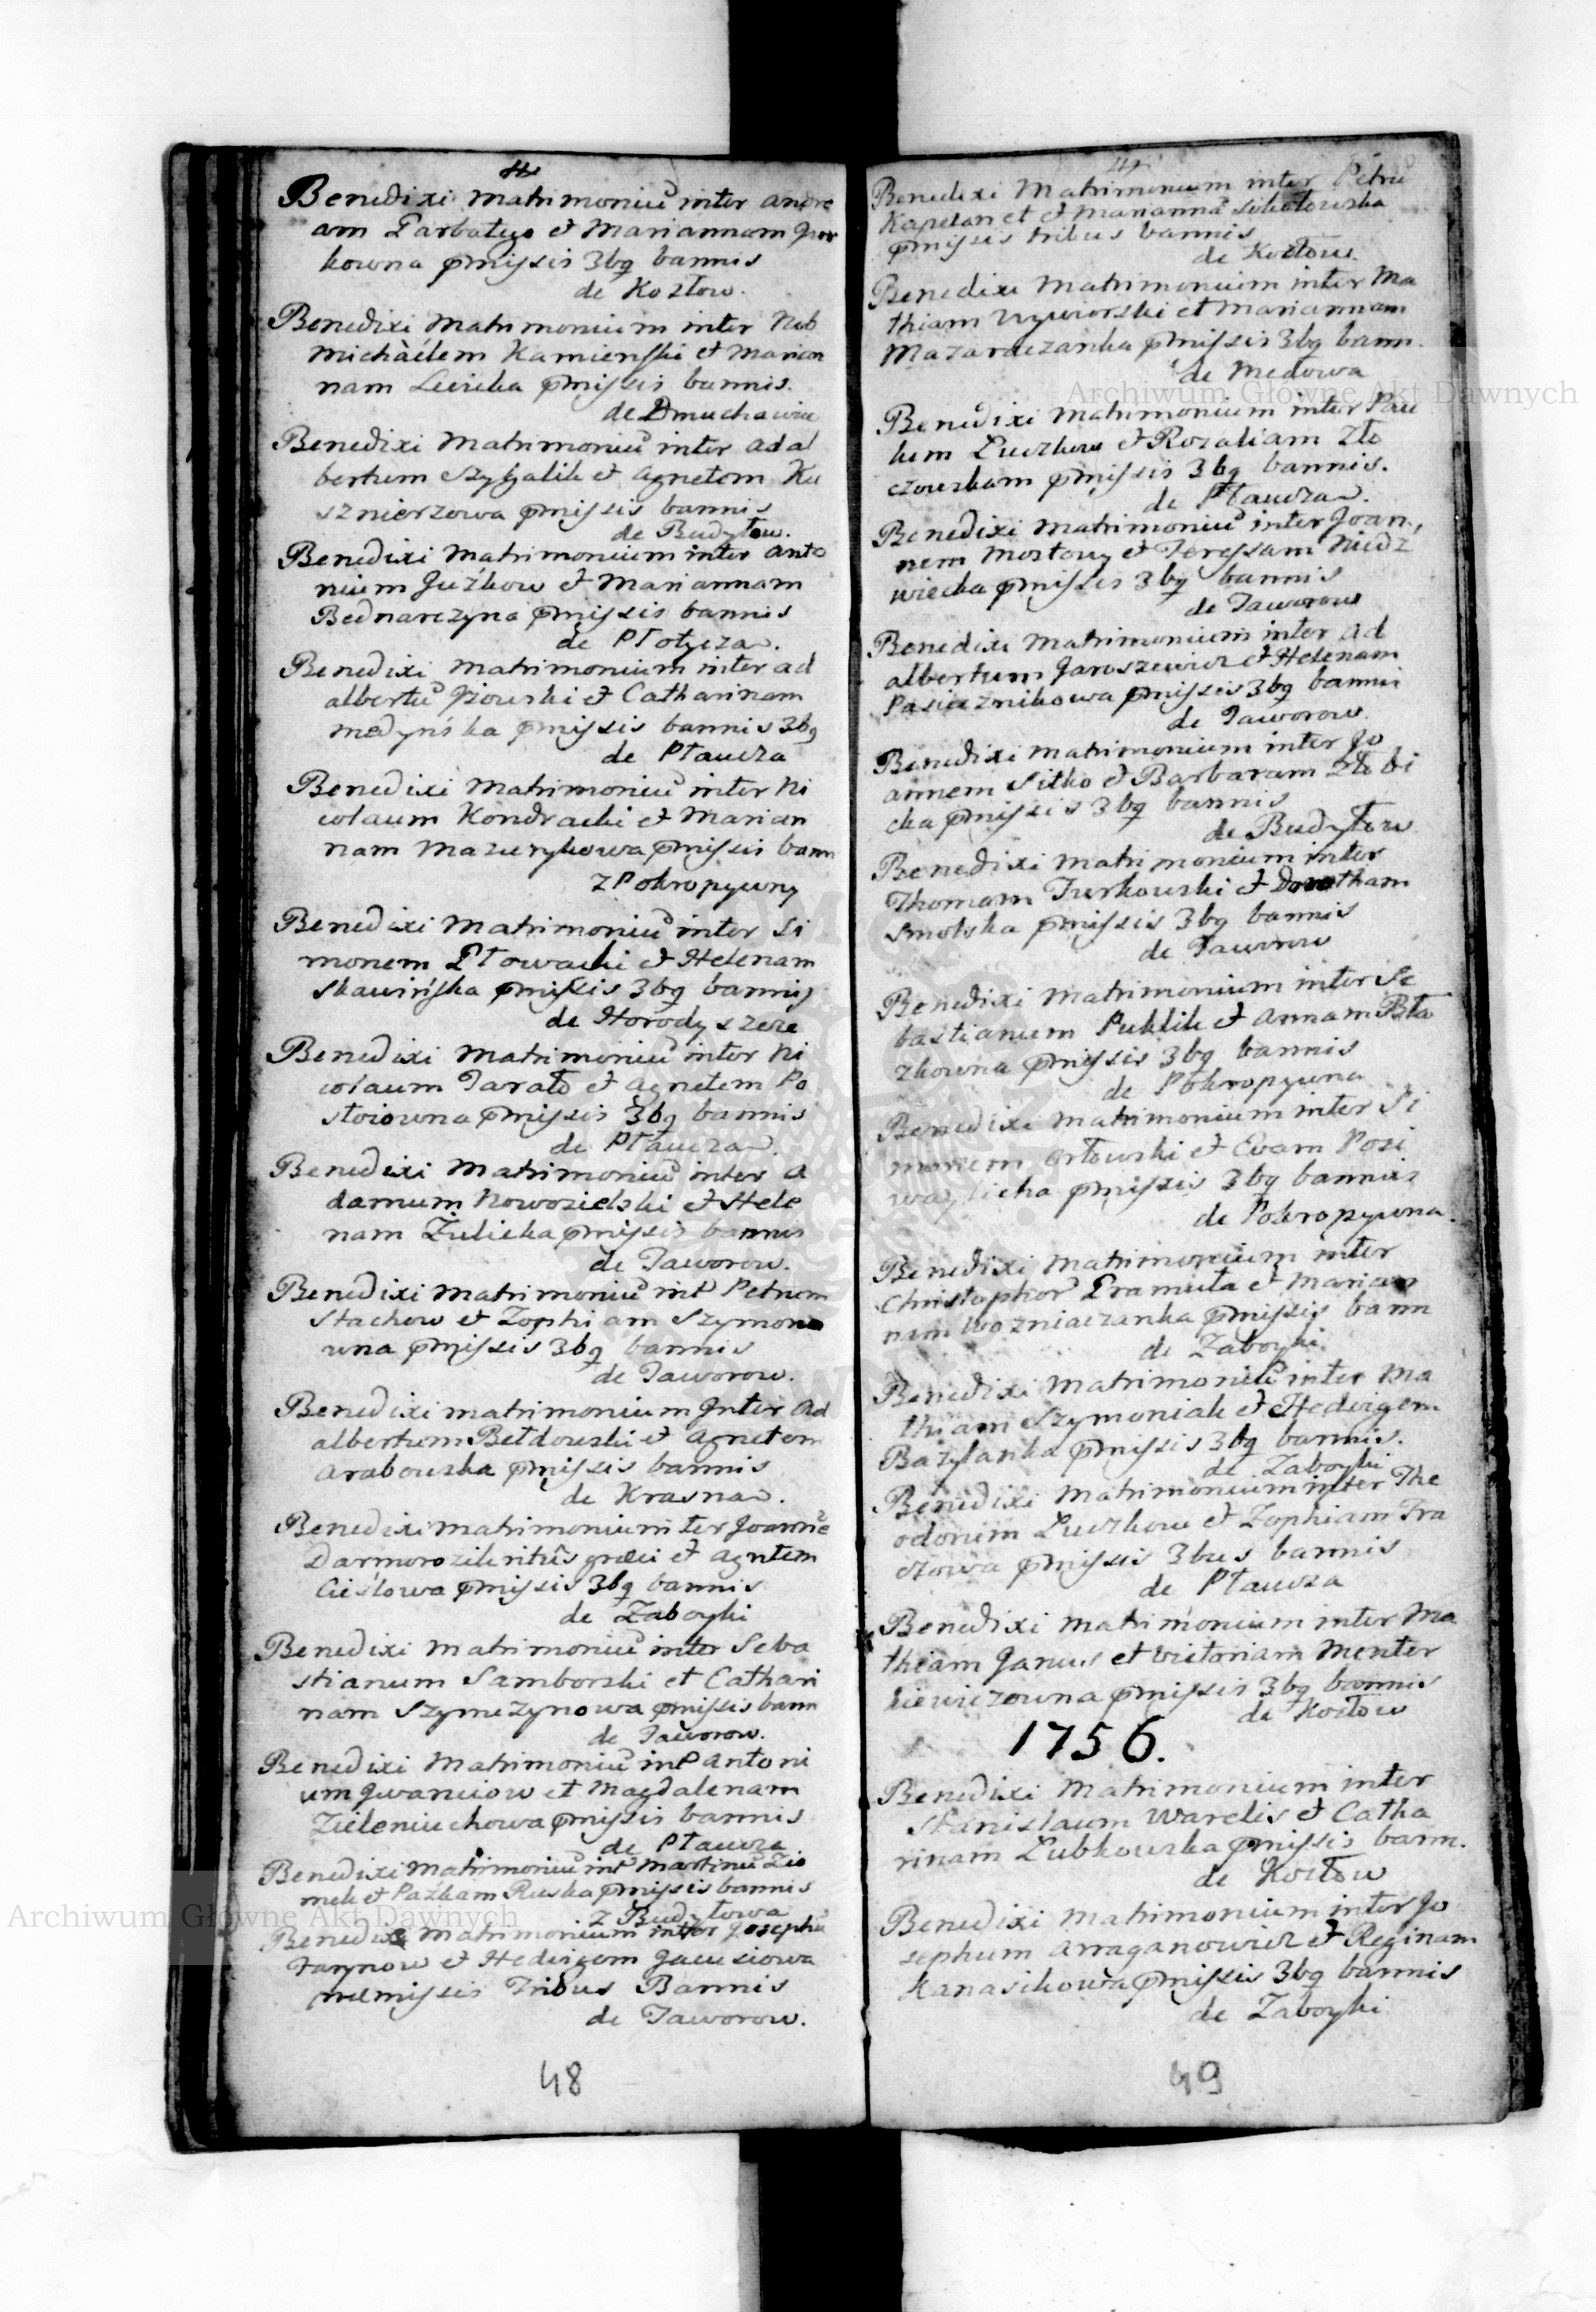 Benedixi Matrimoniũ inter andre
am Garbatego et Mariannam Jur
kowna p̄missis 3bq bannis
de Kozłow.
Benedixi Matrimonium inter Nob
Michäélem Kamienski et Marian
nam Levicka p̄missis bannis.
de Dmuchawiec
Benedixi Matrimoniũ inter adal
bertum Szygalik et Agnetem Ku
sznierzowa p̄missis bannis
de Budyłow.
Benedixi Matrimonium inter anto
nium Juźkow et Mariannam
Bednarczyna p̄missis bannis
de Płotycza.
Benedixi Matrimonium inter ad
albertũ Gzowski et Catharinam
Medyńska p̄missis bannis 3bq
de Płaucza
Benedixi Matrimoniũ inter Ni
colaum Kondracki et Marian
nam Mazurykowa p̄missis bann
z Pokropywny
Benedixi Matrimoniũ inter Si
monem Głowacki et Helenam
Skawińska p̄missis 3bq bannis
de Horodyszcze
Benedixi Matrimoniũ inter Ni
colaum Tarało et Agnetem Po
stoiowna p̄missis 3bq bannis
de Płaucza.
Benedixi Matrimoniũ inter A
damum Nowosielski et Hele
nam Żulicka p̄missis bannis
de Jaworow.
Benedixi Matrimoniũ int Petrum
Stachow et Zophiam Szymono
wna p̄missis 3bq bannis
de Jaworow.
Benedixi matrimonium Jnter Ad
albertum Bełdowski et Agnetem
Arabowska p̄missis bannis
de Krasna.
Benedixi matrimonium ter Joannẽ
Darmorozik ritûs græci et Agntem
Cieślowa p̄missis 3bq bannis
de Zaboyki
Benedixi Matrimoniũ inter Seba
stianum Samborski et Cathari
nam Szymczynowa p̄missis bann
de Jaworow.
Benedixi Matrimoniũ int Antoni
um Jwanciow et Magdalenam
Zieleniuchowa p̄missis bannis
de Płaucza
Benedixi Matrimoniũ int Martinũ Zio
mek et Paźkam Ruska p̄missis bannis
z Budyłowa
Benedixi Matrimonium inter Josephũ
Tarynow et Hedvigem Jacusiowa
præmissis Tribus Bannis
de Jaworow.
48
Benedixi Matrimonium inter Petrũ
Kapelan et Mariannã Sokołowska
p̄missis tribus bannis
de Kozłow.
Benedixi Matrimonium inter Ma
thiam Uzwiorski et Mariannam
Mazaraczanka p̄missis 3bq bann.
de Medowa
Benedixi Matrimonium inter Pau
lum Luczkow et Rozaliam Zło
czowskam p̄missis 3bq bannis.
de Płaucza.
Benedixi Matrimoniũ inter Joan,
nem Mostowy et Teressam Niedź
wiecka p̄missis 3bq bannis
de Jaworow
Benedixi Matrimonium inter Ad
albertum Jaroszewicz et Helenam
Pasiecznikowa p̄missis 3bq bannis
de Jaworow.
Benedixi Matrimonium inter Jo
annem Sitko et Barbaram Złobi
cka p̄missis 3bq bannis
de Budyłow
Benedixi Matrimonium inter
Thomam Turkowski et Dorotham
Smolska p̄missis 3bq bannis
de Jaworow
Benedixi Matrimonium inter Se
bastianum Puklik et Annam Bła
zkowna p̄missis 3bq bannis
de Pokropywna
Benedixi Matrimonium inter Si
monem Orłowski et Evam Posi
p̄missis 3bq bannis
de Pokropywna.
Benedixi Matrimonium inter
Christophor Gramuła et Marian
nam Wozniaczanka p̄missis bann
de Zaboyki.
Benedixi Matrimoniũ inter Ma
thiam Szymoniak et Hedvigem
Bazylanka p̄missis 3bq bannis.
de Zaboyki
Benedixi Matrimonium inter The
odorum Luczkow et Zophiam Tra
czowa p̄missis 3bus bannis
de Płaucza
Benedixi Matrimonium inter Ma
thiam Janus et Victoriam Menter
kiewiczowna p̄missis 3bq bannis
de Kozłow
1756.
Benedixi Matrimonium inter
Stanislaum Warelis et Catha
rinam Lubkowska p̄missis bann.
de Kozłow
Benedixi Matrimonium inter Jo
sephum Arraganowicz et Reginam
Kanasikowa p̄missis 3bq bannis
de Zaboyki
49
Archiwum Główne Akt Dawnych
Archiwum Główne Akt Dawnych